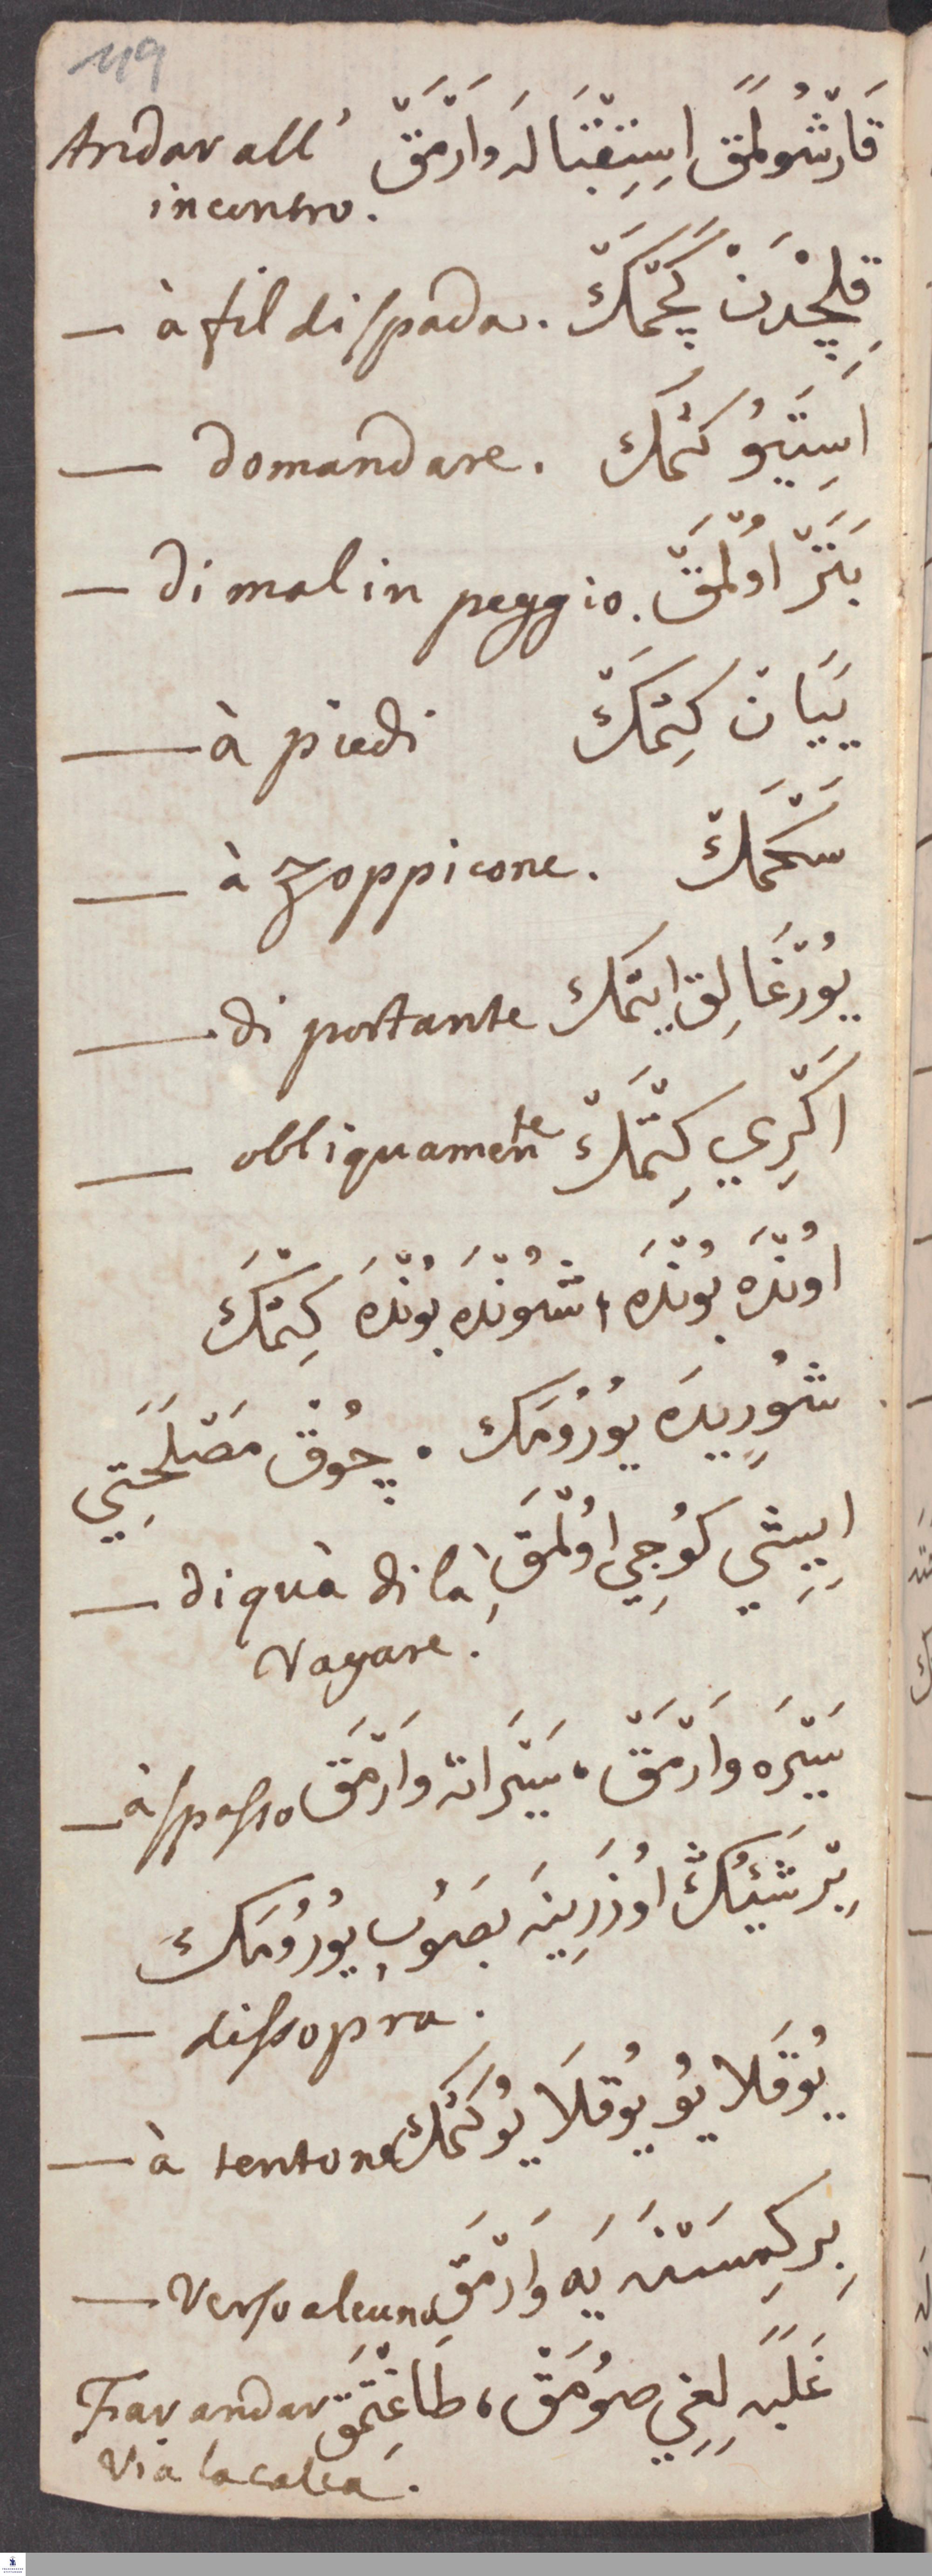 119
Andar all' قَارْشُولَمَقْ اِسِتِقْبَالَه وَارْمَقْ
incontro.
— à fil di spada. قِلِچْدَنْ كَچْمَكْ
— domandare. اسِتَيُو كتمَك
— di mal in peggio. بَتَرْ اوُلْمَقْ
— à piedi يَيَانْ كِتْمَكْ
— à zoppicone. سَكْمَكْ
— di portante يُورْغَا لِقْ ايتمَك
— obliquamente اَكْرِي كِتْمَكْ
اوُنْدَه بُونْدَه ، شُونْدَه بُونْدَه كِتْمَكْ
شُورِيدَه يُورُومَك . چُوقْ مَصْلَحَتِي
اِيشِي كوُجِي اوُلْمَقْ
— di quà di là
Vagare.
— à spasso سَيْرَه وَارْمَقْ ، سَيْرَانَه وَارْمَقْ
بِرْ شَيْئِكْ اوُزَرِينَه بَصُوبْ يُورُومَك
— dissopra.
— à tentone يُوقَلَا يُو يُوقَلَا يُو كَتْمَك
— Verso alcuno بِر كِمسَنَه يَه وَارْمَقْ
Far andar غَلَبَه لِغِي صوُمَقْ ، طَاغِتْمَقْ
Via la calca.